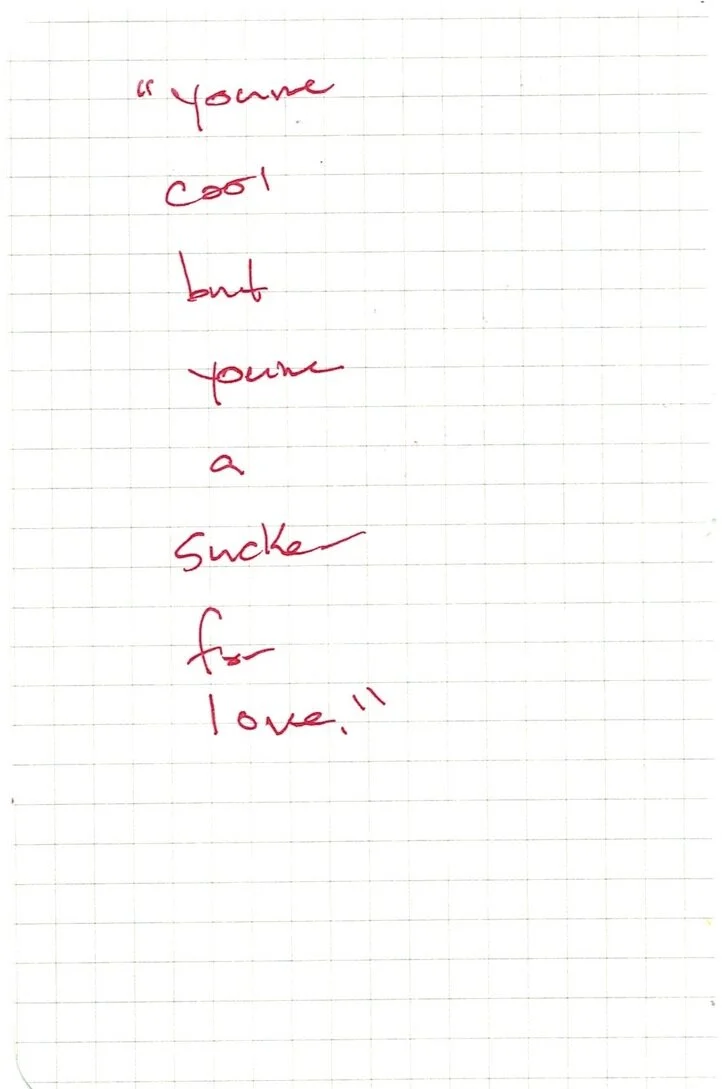 "you're
cool
but
you're
a
sucker
for
love."